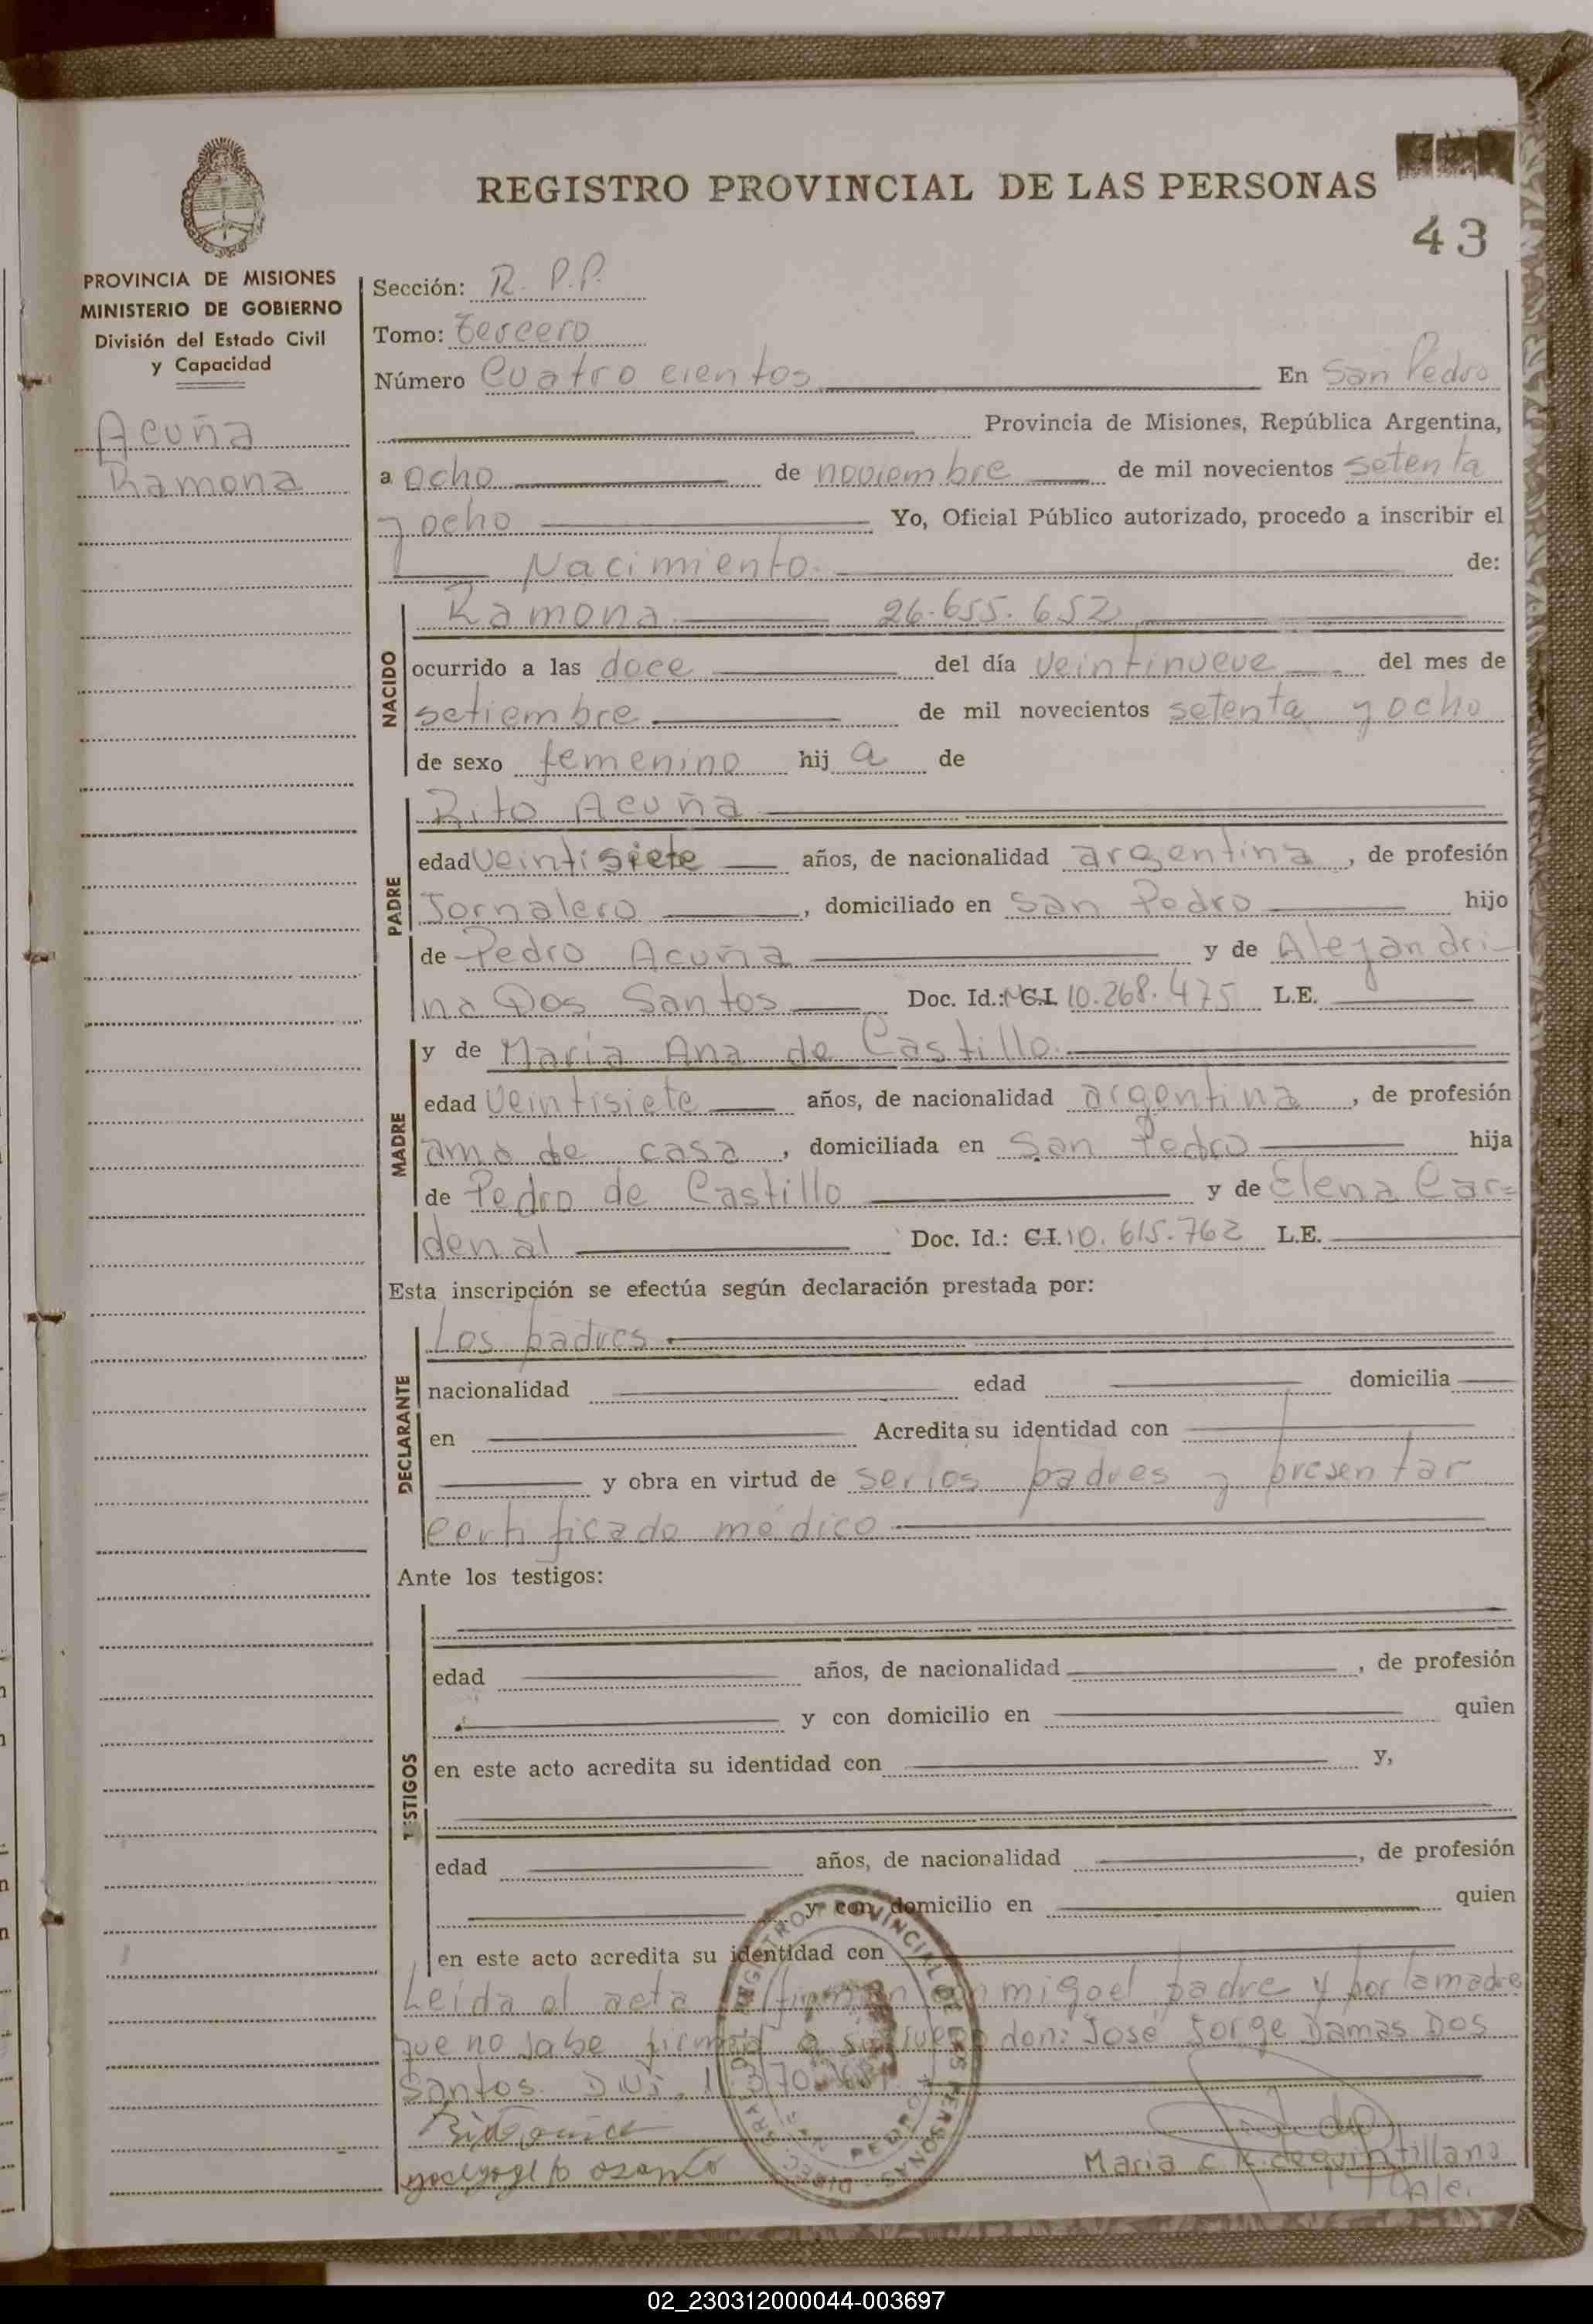 REGISTRO PROVINCIAL DE LAS PERSONAS
43
PROVINCIA DE MISIONES
MINISTERIO DE GOBIERNO
División del Estado Civil
y Capacidad
Acuña
Ramona
Sección: R. P.P.
Tomo: tercero
Número Cuatro cientos En San Pedro
Provincia de Misiones, República Argentina,
a ocho de noviembre de mil novecientos setenta
y ocho Yo, Oficial Público autorizado, procedo a inscribir el
Nacimiento de:
NACIDO
Ramona 26.655.652
ocurrido a las doce del día veintinueve del mes de
setiembre de mil novecientos setenta y ocho
de sexo femenino hij a de
PADRE
Rito Acuña
edad veintisiete años, de nacionalidad argentina, de profesión
Jornalero, domiciliado en San Pedro hijo
de Pedro Acuña y de Alejandri-
na Dos Santos Doc. Id.: C.I. 10.268.475 L.E.
MADRE
y de María Ana de Castillo.
edad veintisiete años, de nacionalidad argentina, de profesión
ama de casa, domiciliada en San Pedro hija
de Pedro de Castillo y de Elena Car=
denal Doc. Id.: C.I. 10.615.762 L.E.
Esta inscripción se efectúa según declaración prestada por:
DECLARANTE
Los padres
nacionalidad edad domicilia
en Acredita su identidad con
y obra en virtud de ser los padres y presentar
certificado médico
Ante los testigos:
TESTIGOS
edad años, de nacionalidad , de profesión
y con domicilio en quien
en este acto acredita su identidad con y,
edad años, de nacionalidad , de profesión
y con domicilio en quien
en este acto acredita su identidad con
Leída el acta firman conmigo el padre y por la madre
que no sabe firmar a su ruego don: José Jorge Damas Dos
Santos.
REGISTRO PROVINCIAL DE LAS PERSONAS
María C. K. de Quintillana
02_230312000044-003697